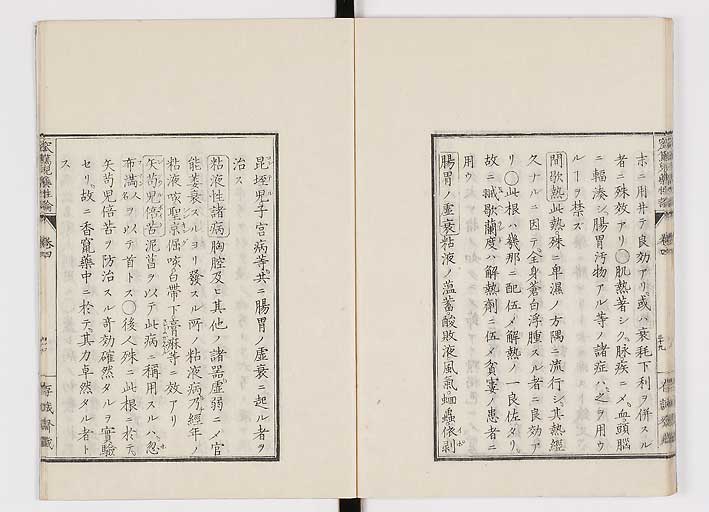 ホニ用井テ良効アリ。或ハ衰耗下利ヲ併スル
者ニ殊效アリ〇肌熱著シク。脉疾ニメ。血頭腦
ニ輻湊シ。腸胃汚物アル等ノ諸症ハ。之ヲ用ウ
ルヿヲ禁ズ
間歇熱此熱。殊ニ卑濕ノ方隅ニ流行シ。其熱經
久ナルニ因テ。全身蒼白浮腫スル者ニ良効ア
リ〇此根ハ幾那ニ配伍メ解熱ノ一良佐タリ。
故ニ間歇ハ解熱劑ニ伍メ貧窶ノ患者ニ
用ウ
腸胃ノ虚衰粘液ノ薀蓄酸敗液風氣蛔蟲依剥
昆垤兒子宮病等。共ニ腸胃ノ虚衰ニ起ル者ヲ
治ス
粘液性諸病胸腔及ヒ其他ノ諸器虚弱ニメ官
能萎衰スルヨリ發スル所ノ粘液病。乃經年ノ
粘液咳聖京倔咳白帶下膏淋等ニ效アリ
矢苟兒倍苦泥菖ヲ以テ此病ニ稱用スルハ。忽
布満人ヲ以テ首トス〇後人殊ニ此根ニ於テ。
矢苟兒倍苦ヲ防治スル奇効確然タルヲ實驗
セリ。故ニ香竄藥中ニ於テ。其力卓然タル者ト
ス
卷四